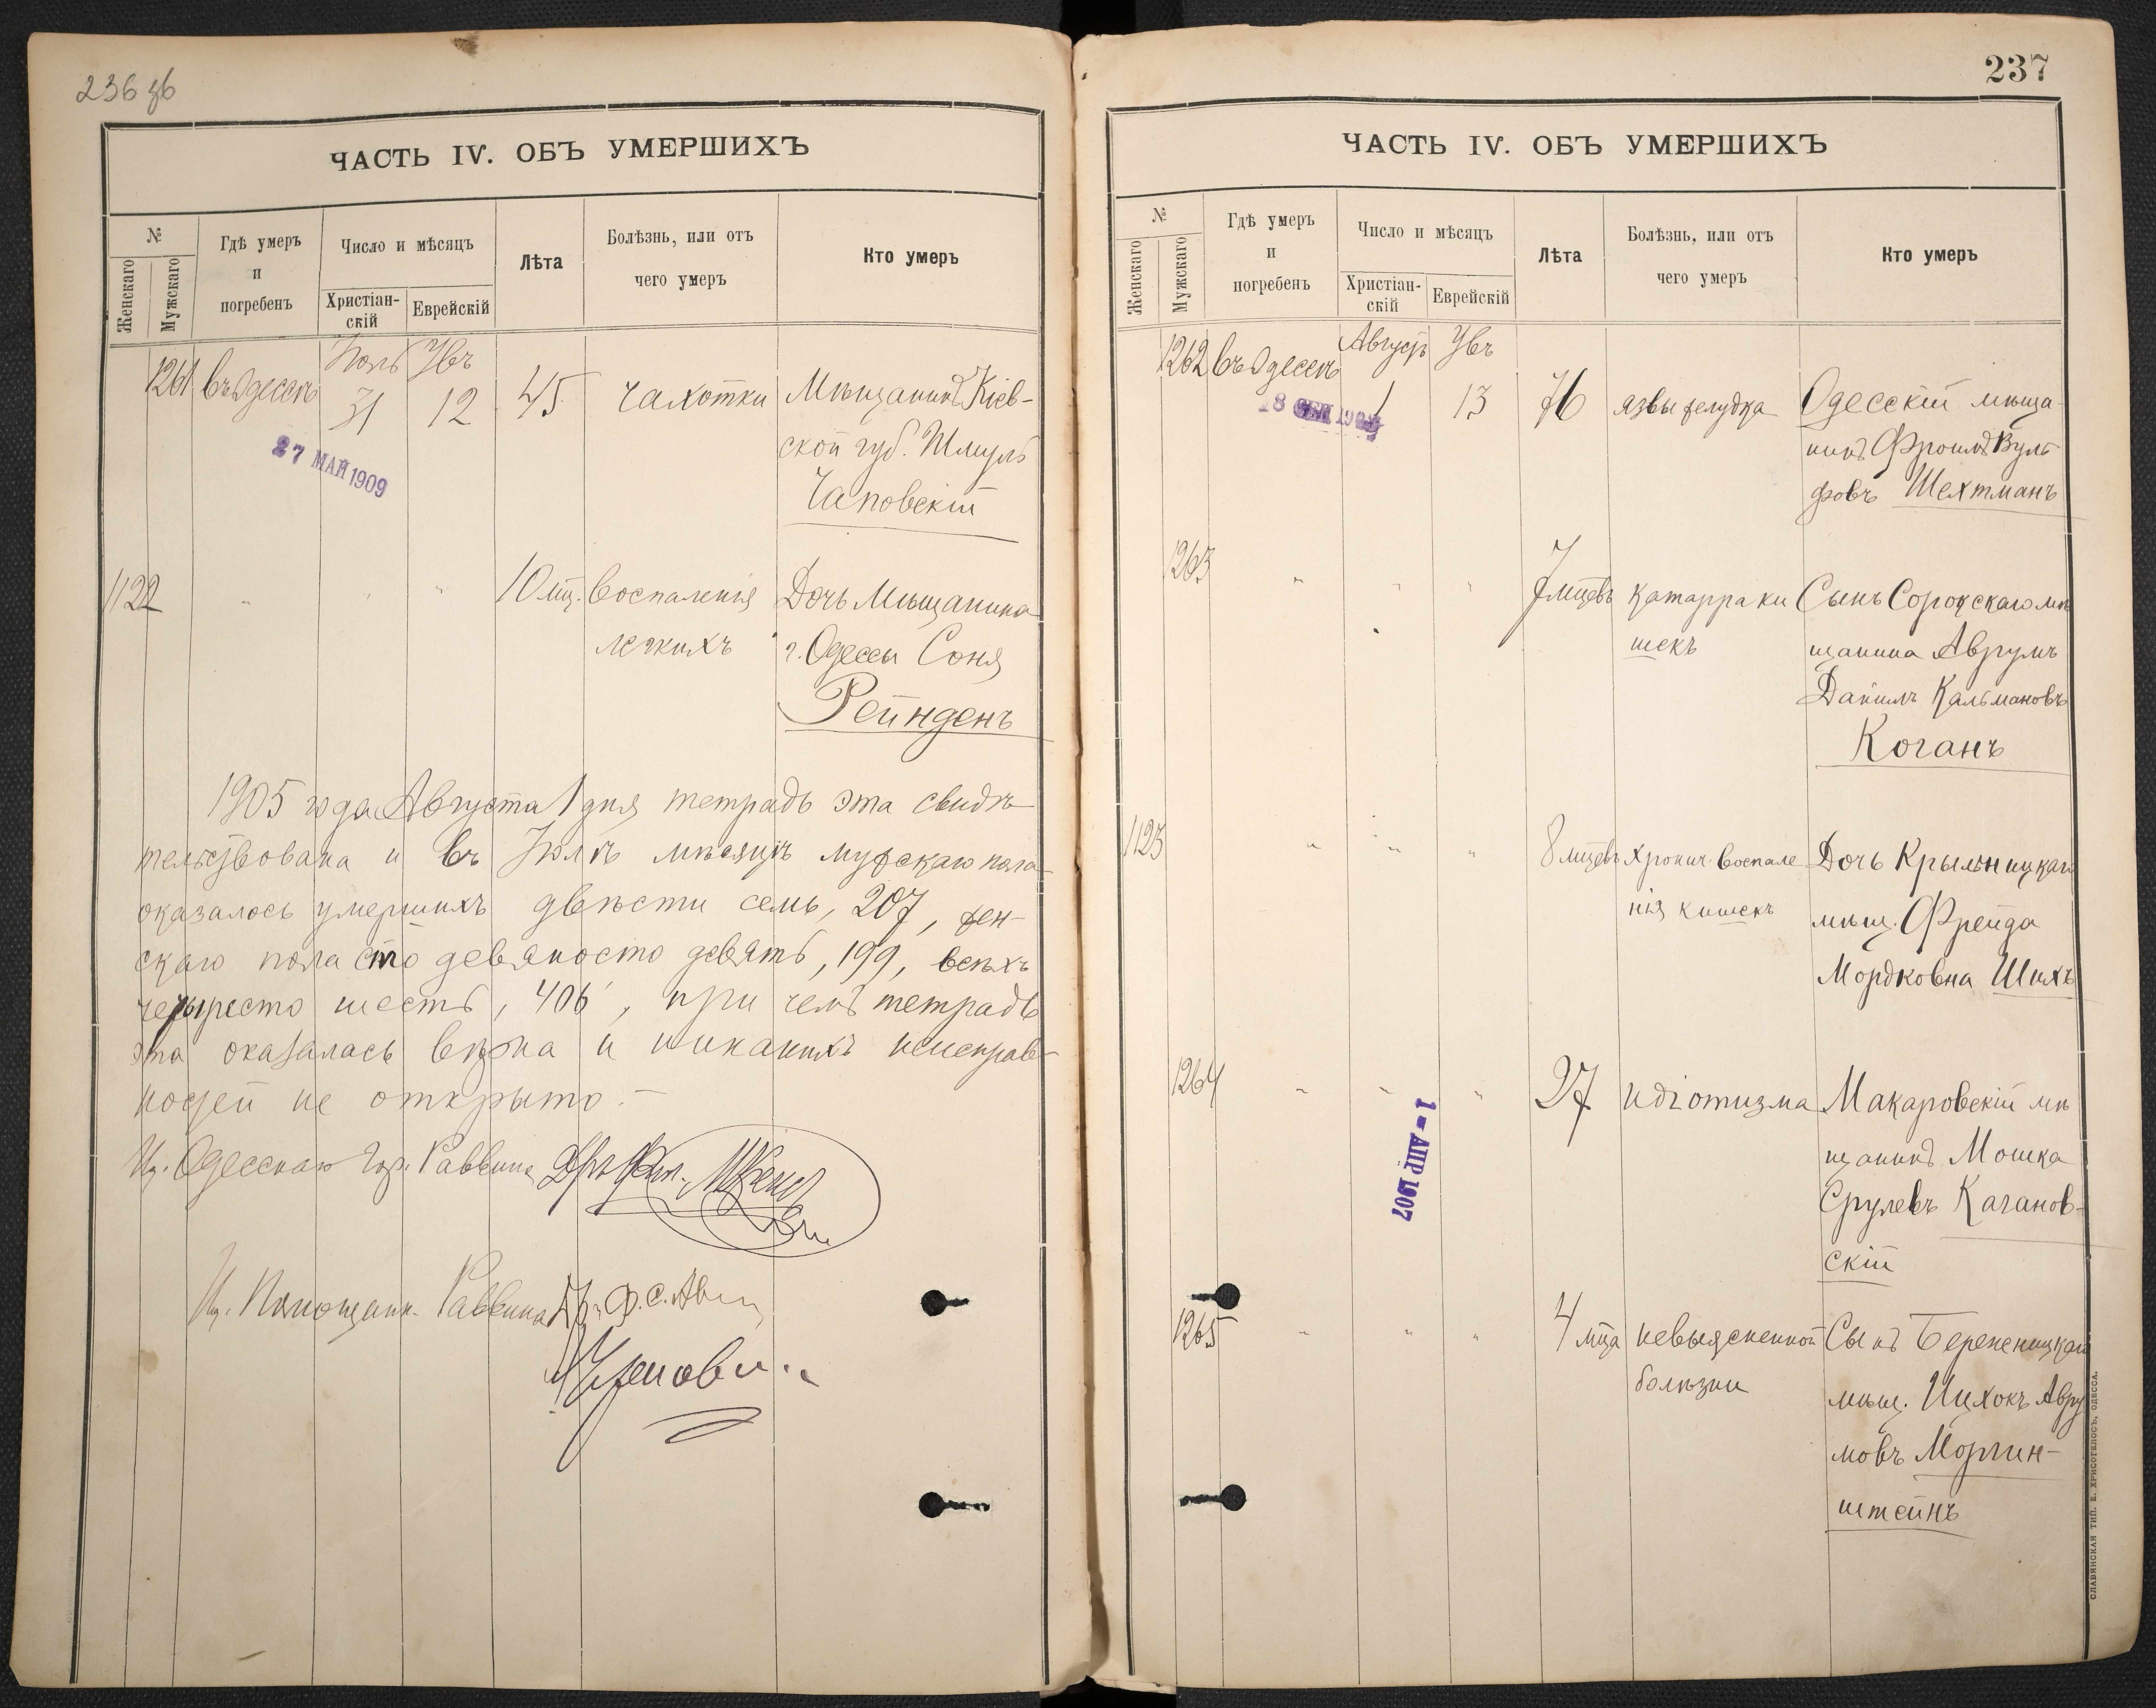 236 зб
ЧАСТЬ IV. ОБЪ УМЕРШИХЪ
№
Женскаго
Мужскаго
Гдѣ умеръ
и
погребенъ
Число и мѣсяцъ
Христіан-
скій
Еврейскій
Лѣта
Болѣзнь, или отъ
чего умеръ
Кто умеръ
Іюль Увъ
1261 въ Одессѣ 31 12 45 чахотки Мѣщанинъ Кіев-
ской губ. Шмуль
Чаповскій
27 МАЙ 1909
1122 " " " 10 мц. воспаленія Дочь Мѣщанина
легкихъ г. Одессы Соня
Рейнденъ
1905 года Августа 1 дня тетрадь эта свидѣ-
тельствована и въ Іюлѣ мѣсяцѣ мужскаго пола
оказалось умершихъ двѣсти семь, 207, жен-
скаго пола сто девяносто девять, 199, всѣхъ
четыреста шесть, 406, при чемъ тетрадь
эта оказалась вѣрна и никакихъ неисправ-
ностей не открыто. —
Одесскаго Гор. Раввина
Раввина
237
ЧАСТЬ IV. ОБЪ УМЕРШИХЪ
№
Женскаго
Мужскаго
Гдѣ умеръ
и
погребенъ
Число и мѣсяцъ
Христіан-
скій
Еврейскій
Лѣта
Болѣзнь, или отъ
чего умеръ
Кто умеръ
Августъ Увъ
1262 въ Одессѣ 1 13 76 язвы желудка Одесскій мѣща-
нинъ Фроимъ Вуль-
фовъ Шехтманъ
18 СЕН
1263 " " " 7 мцевъ катарра ки Сынъ Сорокскаго мѣ
шекъ щанина Аврумъ
Данилъ Кальмановъ
Коганъ
1123 " " " 8 мцевъ хронич. воспале Дочь Крыльницкаго
нія кишекъ мѣщ. Фрейда
Мордковна Шихъ
1264 " " " 27 идіотизма Макаровскій мѣ
щанинъ Мошка
Срулевъ Качанов-
скій
1 - АПР 1907
1265 " " " 4 мца невыясненной Сынъ
болѣзни мѣщ. Ицхокъ Авру
мовъ Моргин-
штейнъ
СЛАВЯНСКАЯ ТИП. Е. ХРИСОГЕЛОСЪ, ОДЕССА.